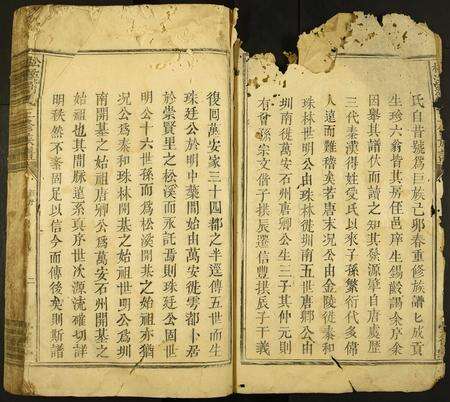 氏自昔號爲巨族己卯春重修族譜已成貢
生珍六翁皆其房侄邑庠生錫齡謁余序余
因舉其譜伏而讀之知其發源肇自唐虞歷
三代秦漢得姓受氏以來子孫繁衍代多偉
人遠而難稽矣若唐末況公由金陵徙泰和
珠林世明公由珠林徙圳南五世唐卿公由
圳南徙萬安石州唐卿公生三子其仲元則
有曾孫宗文偕子拱辰遷信豐拱辰子千義
復同萬安家三十四都之半逕傳五世而生
珠廷公於明中葉開始由萬安徙雩都卜居
於崇賢里之松溪而永託焉則珠廷公固世
明公十六世孫而爲松溪開基之始祖亦猶
況公爲泰和珠林開基之始祖世明公爲圳
南開基之始祖唐卿公爲萬安石州開基之
始祖也其間脈遠系真序世次源流確切詳
明秩然不紊固足以信今而傳後矣則斯譜